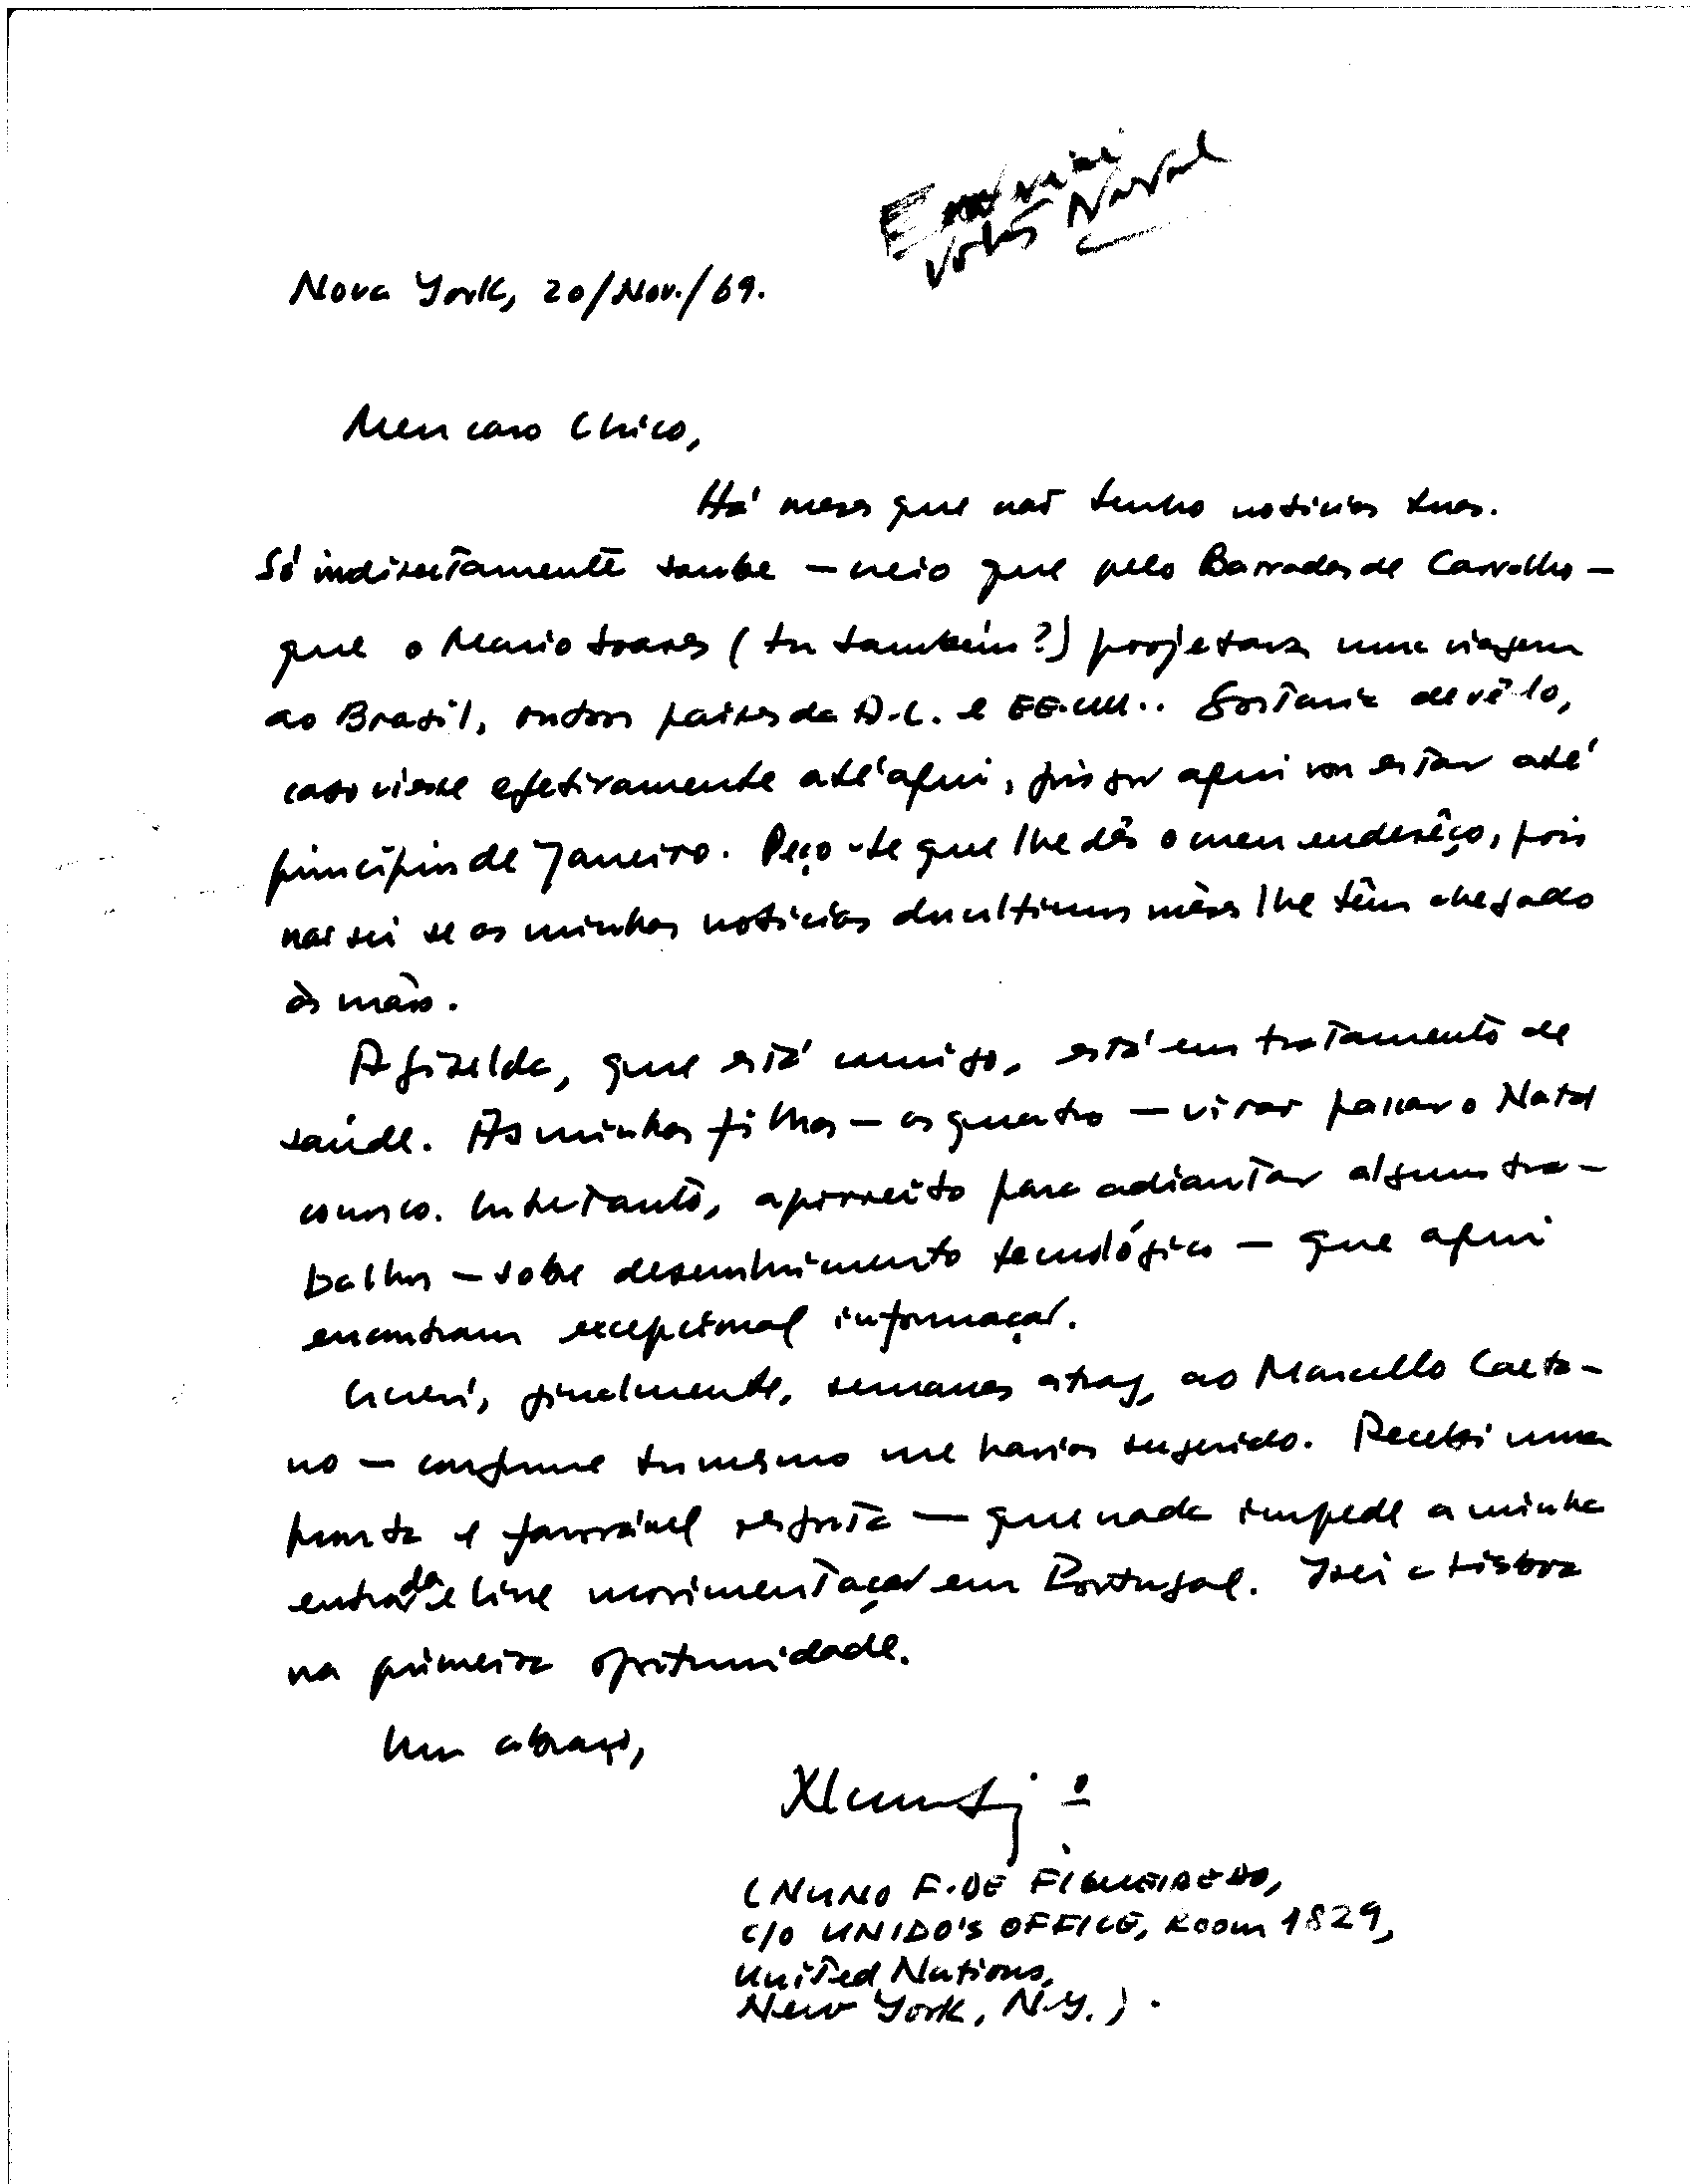 Enviei
Votos Natal
Nova York, 20/Nov./69.
Meu caro Chico,
Há meses que não tenho notícias tuas.
Só indirectamente soube — creio que pelo Barradas de Carvalho —
que o Mario Soares (tu também?) projetava uma viagem
ao Brasil, outros países da A.L. e EE.UU.. Gostaria de vê-lo,
caso viesse efetivamente até aqui, pois por aqui vou estar até
princípios de Janeiro. Peço-te que lhe dês o meu enderêço, pois
não sei se as minhas notícias dos últimos mêses lhe têm chegado
às mãos.
A Gizelda, que está comigo, está em tratamento de
saúde. As minhas filhas — as quatro — virão passar o Natal
conosco. Entretanto, aproveito para adiantar alguns tra-
balhos — sobre desenvolvimento tecnológico — que aqui
encontram excepcional informação.
Escrevi, finalmente, semanas atraz, ao Marcello Caeta-
no — conforme tu mesmo me havias sugerido. Recebi uma
pronta e favorável resposta — que nada impede a minha
entrada e livre movimentação em Portugal. Irei a Lisboa
na primeira oportunidade.
Um abraço,
(NUNO F. DE FIGUEIREDO,
C/O UNIDO'S OFFICE, Room 1829,
United Nations,
New York, N.Y.).